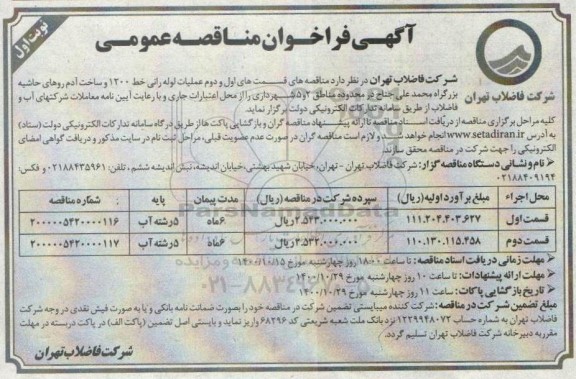 نوبت اول
آگهی فراخوان مناقصه عمومی
شرکت فاضلاب تهران
شرکت فاضلاب تهران در نظر دارد مناقصه های قسمت های اول و دوم عملیات لوله رانی خط ۱۲۰۰ و ساخت آدم روهای حاشیه
بزرگراه محمد علی جناح در محدوده مناطق ۲و۵ شهرداری را از محل اعتبارات جاری و با رعایت آیین نامه معاملات شرکتهای آب و
فاضلاب از طریق سامانه تدارکات الکترونیکی دولت برگزار نماید.
کلیه مراحل برگزاری مناقصه از دریافت اسناد مناقصه تا ارائه پیشنهاد مناقصه گران و بازگشایی پاکت ها از طریق درگاه سامانه تدارکات الکترونیکی دولت (ستاد)
به آدرس www.setadiran.ir انجام خواهد شد و لازم است مناقصه گران در صورت عدم عضویت قبلی، مراحل ثبت نام در سایت مذکور و دریافت گواهی امضای
الکترونیکی را جهت شرکت در مناقصه محقق سازند.
* نام و نشانی دستگاه مناقصه گزار: شرکت فاضلاب تهران - تهران، خیابان شهید بهشتی، خیابان اندیشه، نبش اندیشه ششم، تلفن: ۰۲۱۸۸۴۳۵۹۶۱ و فکس:
۰۲۱۸۸۴۰۹۱۹۴
محل اجراء مبلغ برآورد اولیه (ریال) سپرده شرکت در مناقصه (ریال) مدت پیمان پایه شماره مناقصه
قسمت اول ۱۱۱.۲۰۴.۴۰۳.۶۲۷ ۲.۵۴۳.۰۰۰.۰۰۰ ریال ۶ماه ۵رشته آب ۲۰۰۰۰۰۵۴۲۰۰۰۰۱۱۶
قسمت دوم ۱۱۰.۱۳۰.۱۱۵.۴۵۸ ۲.۵۳۲.۰۰۶.۰۰۰ ریال ۶ماه ۵رشته آب ۲۰۰۰۰۰۵۴۲۰۰۰۰۱۱۷
* مهلت زمانی دریافت اسناد مناقصه: تا ساعت ۱۸:۰۰ روز چهارشنبه مورخ ۱۴۰۰/۱۰/۱۵
* مهلت ارائه پیشنهادات: تا ساعت ۱۰ روز چهارشنبه مورخ ۱۴۰۰/۱۰/۲۹
* تاریخ بازگشایی پاکات: ساعت ۱۱ روز چهارشنبه مورخ ۱۴۰۰/۱۰/۲۹
مبلغ تضمین شرکت در مناقصه: شرکت کننده میبایستی تضمین شرکت در مناقصه خود را بصورت ضمانت نامه بانکی و یا به صورت فیش نقدی در وجه شرکت
فاضلاب تهران به شماره حساب ۱۲۲۹۹۴۸۰۷۲ نزد بانک ملت شعبه شریعتی کد ۶۸۲۹۶ واریز نماید و بایستی اصل تضمین (پاکت الف) در پاکت دربسته در مهلت
مقرر به دبیرخانه شرکت فاضلاب تهران تسلیم گردد.
شرکت فاضلاب تهران